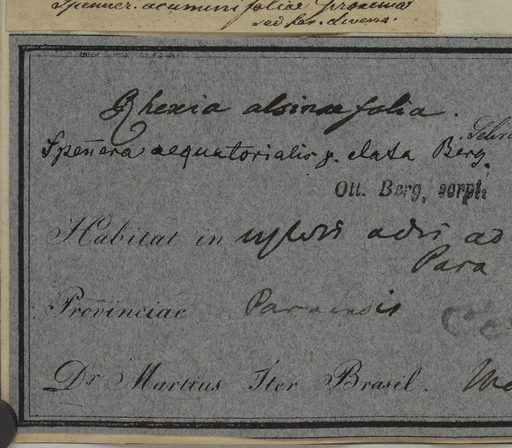 Spenner. acuminifoliae proxima
sed hab. diversa.
Rhexia alsinaefolia.
Speñera aequatorialis γ. elata Berg.
Ott. Berg, scrps.
Habitat in sylvis ad
Para
Provinciae Paraensis
Dr Martius Iter Brasil.